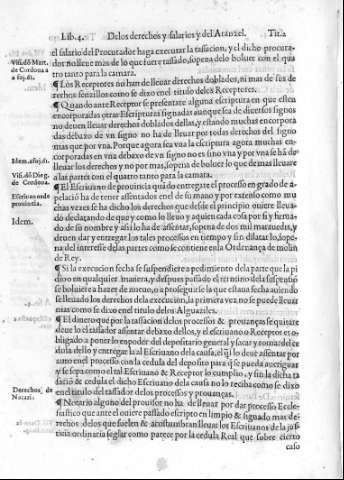 Lib.4. De los derechos y salarios y del Aranzel. Tit.2
el salario del Procurador haga executar la tassacion, y el dicho procura-
dor no lleue mas de lo que fuere tassado, so pena de lo boluer con el qua
tro tanto para la camara.
Visi. dō Mart.
de Cordoua à
fo. 61.
¶ Los Receptores no han de lleuar derechos doblados, ni mas de sos de
rechos senzillos como se dixo en el titulo de los Receptores.
¶ Quando ante Receptor se presentare alguna escriptura en que esten
encorporadas otras Escripturas signadas aunque sea de diuersos signos
no deuen lleuar derechos doblados dellas, y estando muchas encorpora
das debaxo de vn signo no ha de lleuar por todas derechos del signo
mas que por vna. Porque agora sea vna la escriptura agora muchas en-
corporadas en vna debaxo de vn signo no es sino vna y por vna se hā de
Idem. à fo. 61.
lleuar los derechos y no por mas, so pena de boluer lo que de mas lleuare
a las partes con el quatro tanto para la camara.
Visi. dō Dieg.
de Cordoua.
¶ El Escriuano de prouincia quādo entregare el processo en grado de a-
pelació ha de tener assentados en el de su mano y por
Escriuanos de
prouincia.
chas vezes se ha dicho los derechos que desde el principio ouiere lleua
do declarando de que y como lo lleuo y a quien cada cosa por si y firma-
Idem.
do de su nombre y assi lo ha de assentar, so pena de dos mil marauedis, y
deuen dar y entregar los tales processos en tiempo y sin dilatarlo, so pe-
na del interesse de las partes como se contiene en la Ordenança de molin
de Rey.
¶ Si la execucion fecha se suspendiere a pedimiento de la parte que la pi
dio en qualquier manera, y despues passado el termino de la suspensiō
se boluiere a hazer de nueuo, o a proseguirse la que estaua fecha auiendo
se lleuado los derechos de la execucion, la primera vez no se puede lleuar
mas como se dixo en el titulo de los Alguaziles.
¶ El dinero que por la tassacion de los processos & prouanças se quitare
deue lo el tassador assentar debaxo dellos, y el escriuano o Receptor es o-
bligado a poner lo en poder del depositario general y sacar y tomar dece
dula dello y entregarla al Escriuano de la causa, el ql lo deue assentar por
auto en el processo con la cedula del deposito para que se pueda aueriguar
y se sepa como el tal Escriuano & Receptor lo cumplio, y sin la dicha ta
ssació & cedula el dicho Escriuano de la causa no lo reciba como se dixo
en el titulo del tassador de los processos y prouanças.
Derechos de
Notari.
¶ Notario alguno del prouisor no ha de lleuar por dar processo Ecle-
siastico que ante el ouiere passado escripto en limpio & signado mas de-
rechos delos que suelen & acostumbran lleuar los Escriuanos de la jus-
ticia ordinaria seglar como parece por la cedula Real que sobre cierto
caso